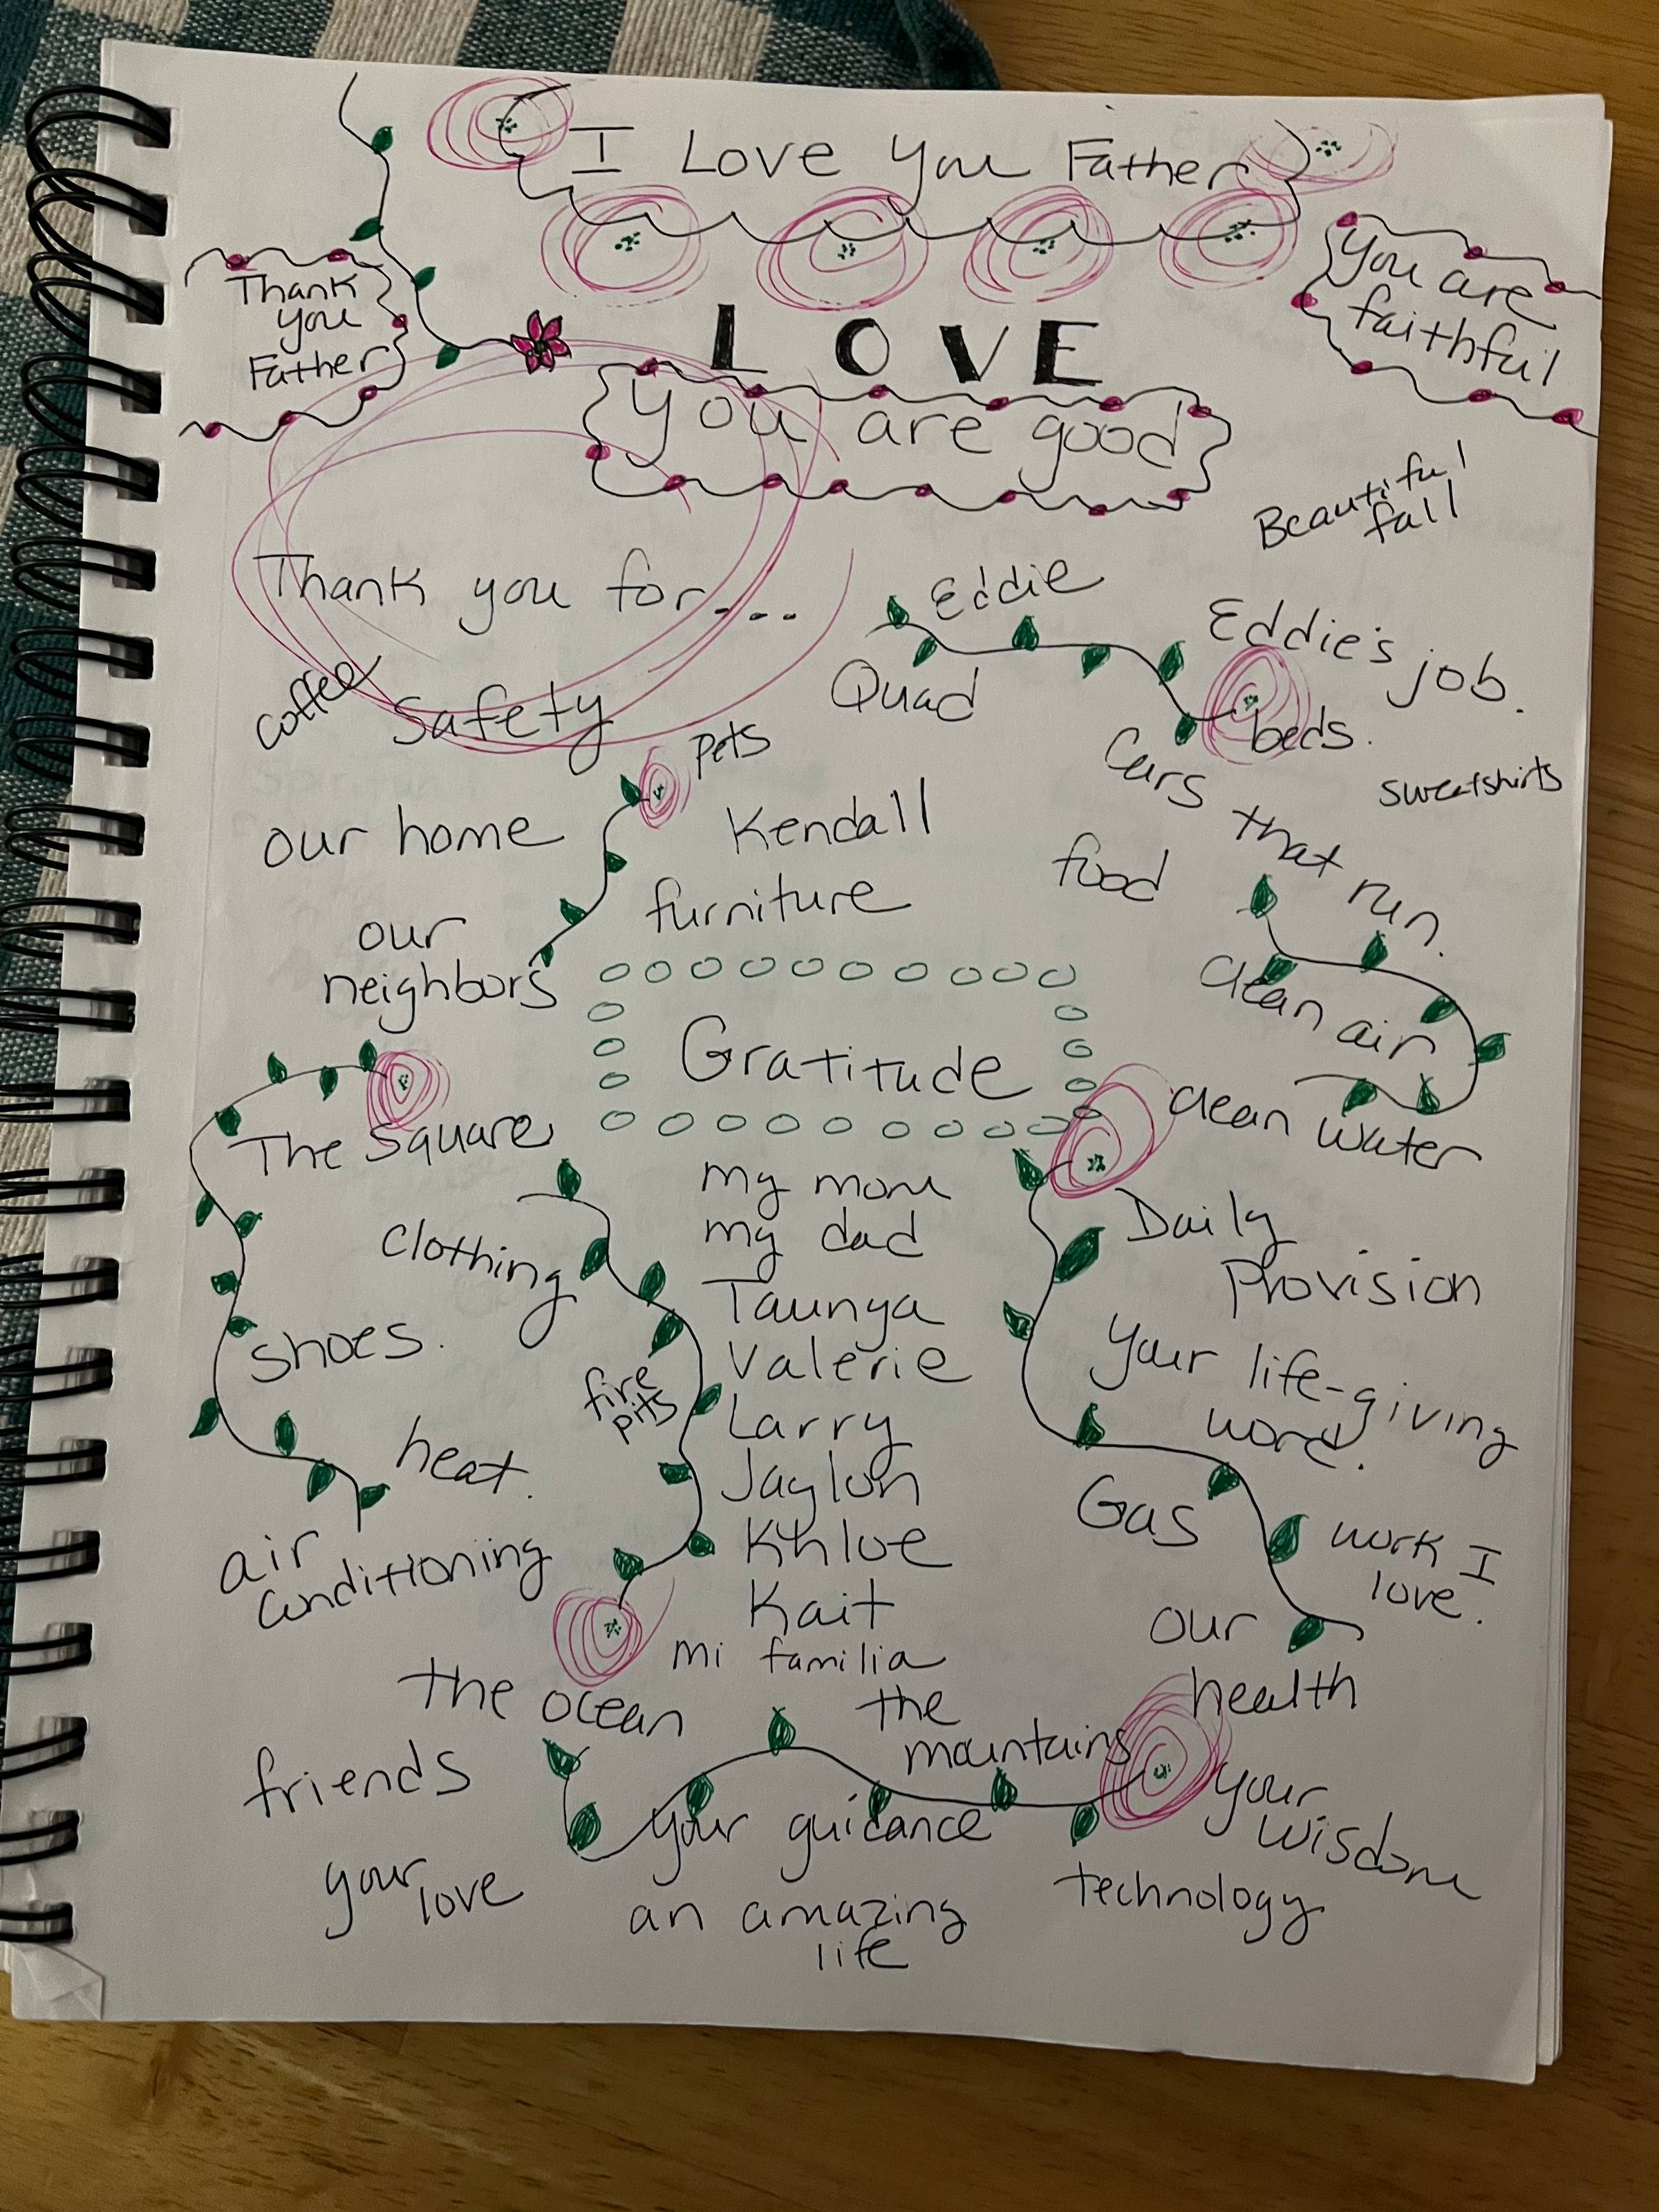 I Love You Father
Thank
you
Father
You are
faithful
LOVE
You are good
Beautiful
fall
Thank you for....
Eddie
Eddie's job.
coffee
Safety
Quad
beds.
pets
Cars
that
run.
sweatshirts
our home
Kendall
food
furniture
our
neighbors
clean air
Gratitude
clean water
The Square
my mom
my dad
Daily
Provision
clothing
Taunya
Valerie
your life-giving
word.
shoes.
fire
pits
Larry
Jaylon
heat.
Gas
work I
love.
air
conditioning
Khloe
Kait
our
health
mi familia
the ocean
the
mountains
friends
your guidance
your
wisdom
your
love
an amazing
life
technology